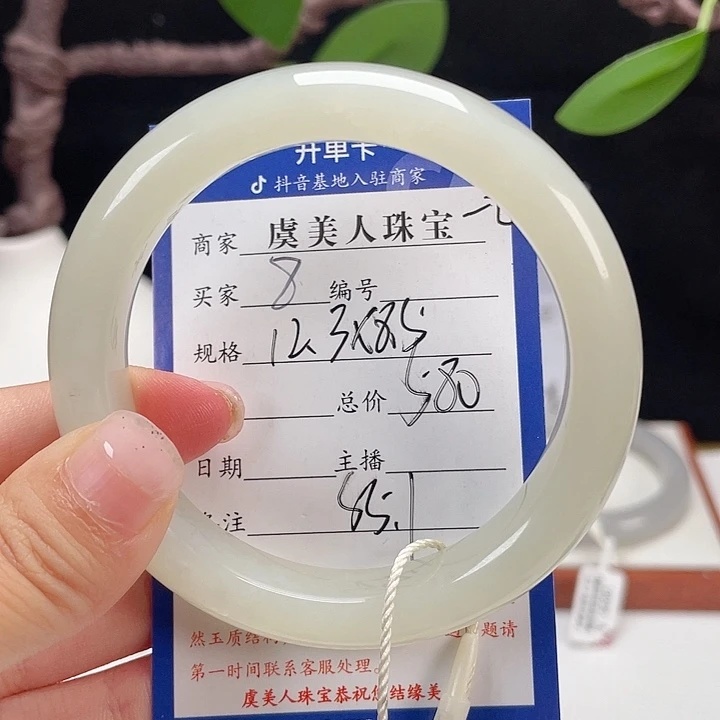 开单卡
抖音基地入驻商家
商家 虞美人珠宝
买家 8 编号
规格 12.3X8.5
总价 580
日期 主播
备注
然玉质结构
题请
第一时间联系客服处理。
虞美人珠宝恭祝您结缘美